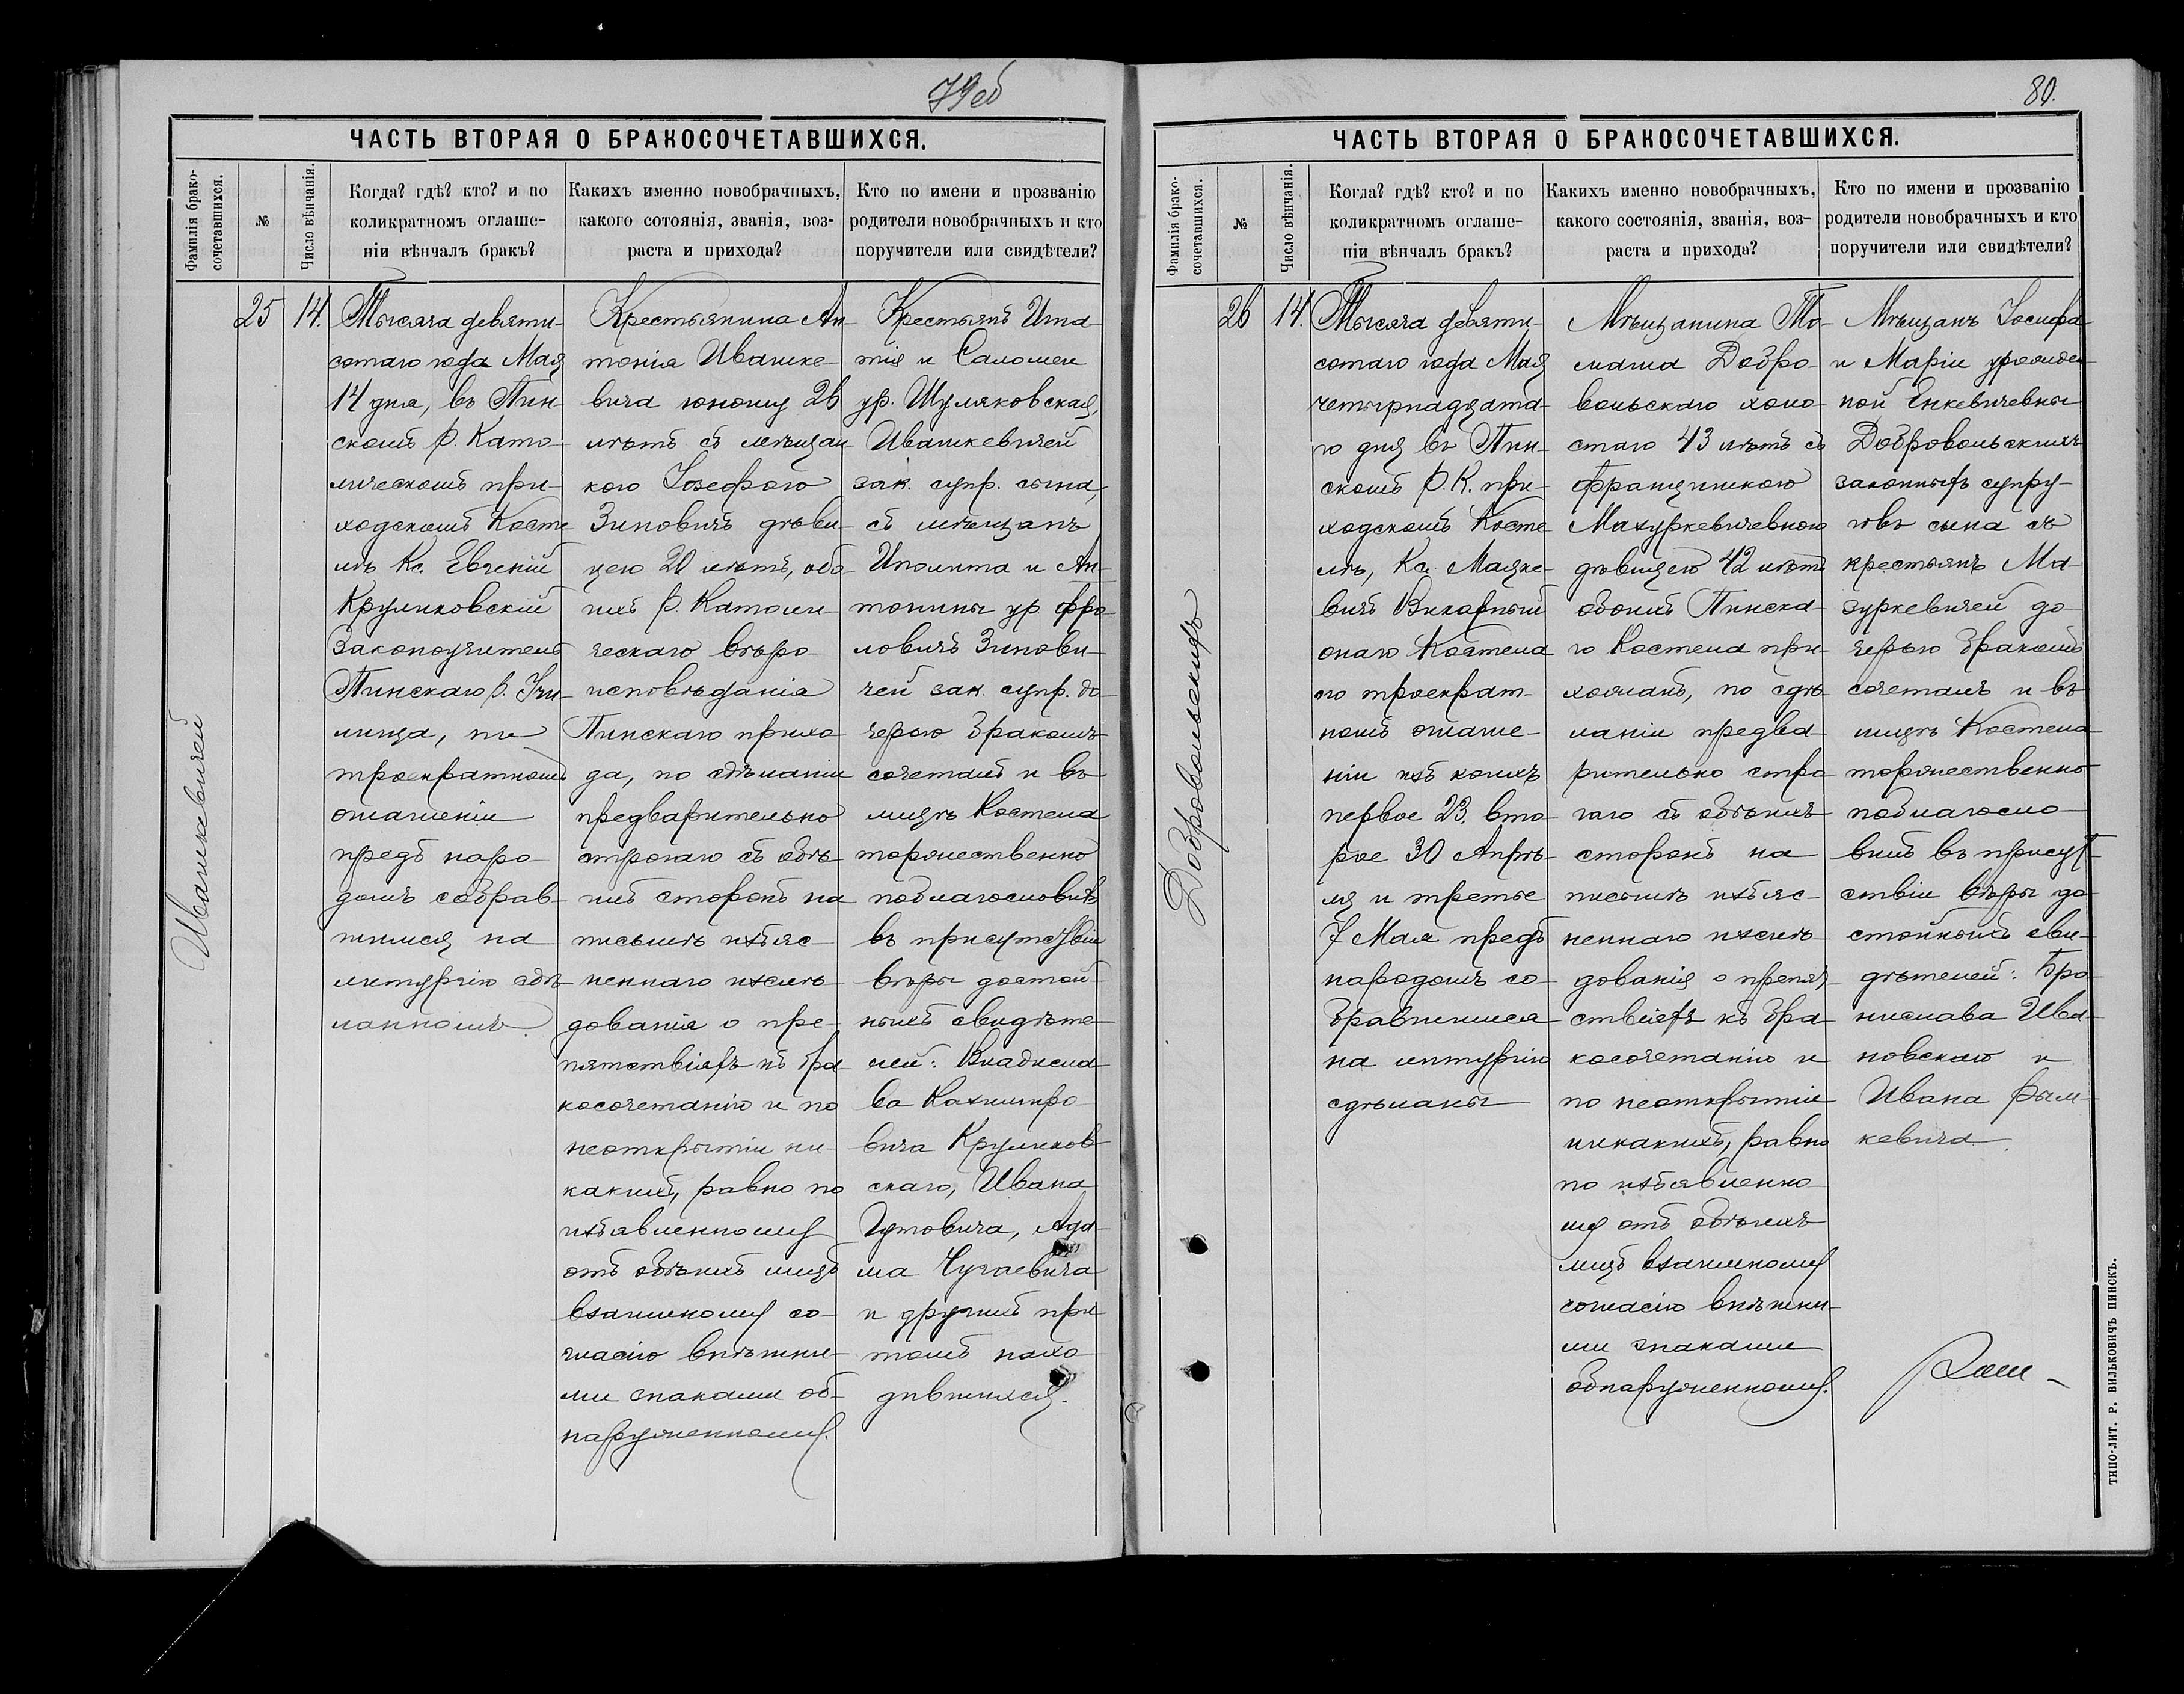 79об
ЧАСТЬ ВТОРАЯ О БРАКОСОЧЕТАВШИХСЯ.
Фамилія брако-
сочетавшихся.
№
Число вѣнчанія.
Когда? гдѣ? кто? и по
коликратномъ оглаше-
ніи вѣнчалъ бракъ?
Какихъ именно новобрачныхъ,
какого сотоянія, званія, воз-
раста и прихода?
Кто по имени и прозванію
родители новобрачныхъ и кто
поручители или свидѣтели?
Ивашкевичей
25
14.
Тысяча девяти-
сотаго года Мая
14 дня, въ Пин-
скомъ Р. Като-
лическомъ при-
ходскомъ Косте
лѣ Кс. Евгеній
Круликовскій
Законоучитель
Пинскаго р. Учи-
лища, по
троекратномъ
оглашеніи
предъ наро-
домъ собрав-
шимся на
литургію здѣ
ланномъ
Крестьянина Ан-
тонія Ивашке-
вича юношу 26
лѣтъ съ мѣщан
кою Іозефою
Зиновичъ дѣви-
цею 20 лѣтъ, обо-
ихъ Р. Католи-
ческаго вѣро-
исповѣданія
Пинскаго прихо
да, по сдѣланіи
предварительно
строгаго съ обѣ-
ихъ сторонъ на
письмѣ изъяс-
неннаго изслѣ-
дованія о пре-
пятствіяхъ къ бра
косочетанію и по
неоткрытіи ни-
какихъ, равно по
изъявленному
отъ обѣихъ лицъ
взаимному со-
гласію внѣшни-
ми знаками об-
наруженному.
Крестьянъ Игна-
тія и Саломеи
ур. Шуляковская,
Ивашкевичей
зак. супр. сына,
съ мѣщанъ
Иполита и Ан-
тонины ур Фро-
ловичъ Зинови-
чей зак. супр. до-
черью бракомъ
сочеталъ и въ
лицѣ Костела
торжественно
поблагословилъ
въ присутствіи
вѣры достой-
ныхъ свидѣте-
лей: Владисла-
ва Казимиро-
вича Круликов-
скаго, Ивана
Гутовича, Ада-
ма Чучаевича
и другихъ при
томъ нахо-
дившихся.
80.
ЧАСТЬ ВТОРАЯ О БРАКОСОЧЕТАВШИХСЯ.
Фамилія брако-
сочетавшихся.
№
Число вѣнчанія.
Когда? гдѣ? кто? и по
коликратномъ оглаше-
ніи вѣнчалъ бракъ?
Какихъ именно новобрачныхъ,
какого состоянія, званія, воз-
раста и прихода?
Кто по имени и прозванію
родители новобрачныхъ и кто
поручители или свидѣтели?
Добровольскихъ
26
14.
Тысяча девяти-
сотаго года Мая
четырнадцата-
го дня въ Пин-
скомъ Р. К. при-
ходскомъ Косте
лѣ, Кс. Мацке-
вичъ Викарный
онаго Костела
по троекрат-
номъ оглаше-
ніи изъ коихъ
первое 23, вто-
рое 30 Апрѣ-
ля и третье
7 Мая предъ
народомъ со-
бравшимся
на литургію
сдѣланы
Мѣщанина То-
маша Добро-
вольскаго холо-
стаго 43 лѣтъ съ
Францишкою
Мазуркевичевною
дѣвицею 42 лѣтъ
обоихъ Пинска-
го Костела при-
хожанъ, по сдѣ-
ланіи предва-
рительно стро
гаго съ обѣихъ
сторонъ на
письмѣ изъяс-
неннаго изслѣ-
дованія о препят-
ствіяхъ къ бра-
косочетанію и
по неоткрытіи
никакихъ, равно
по изъявленно-
му отъ обѣихъ
лицъ взаимному
согласію внѣшни-
ми знаками
обнаруженному.
Мѣщанъ Іосифа
и Маріи урожден
ной Енкевичевны
Добровольскихъ
законныхъ супру-
говъ сына съ
крестьянъ Ма-
зуркевичей до-
черью бракомъ
сочеталъ и въ
лицѣ Костела
торжественно
поблагосло-
вилъ въ присут-
ствіи вѣры до-
стойныхъ сви-
дѣтелей: Бро-
нислава Ива-
новскаго и
Ивана Рым-
кевича.
ТИПО-ЛИТ. Р. ВИЛЬКОВИЧЪ ПИНСКЪ.